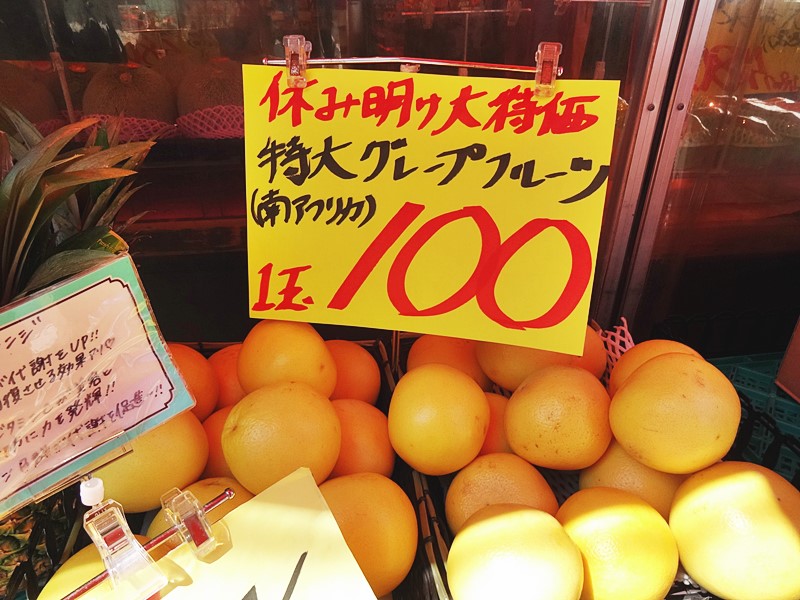 休み明け大特価
特大グレープフルーツ
(南アフリカ)
1玉 100
ンジ
代謝をUP!!
復させる効果アリ♡
に力を発揮!!